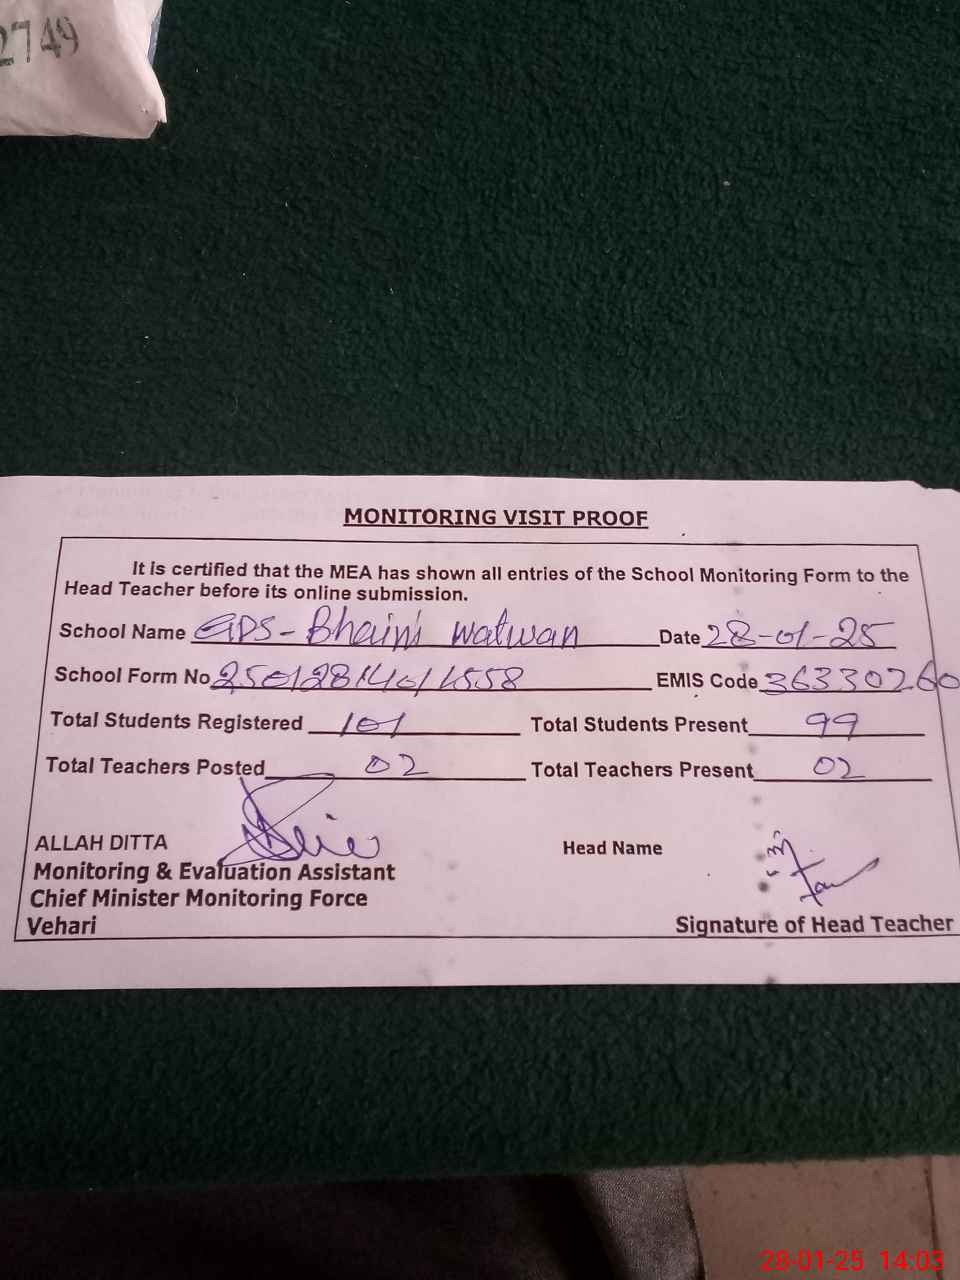 2749
MONITORING VISIT PROOF
It is certified that the MEA has shown all entries of the School Monitoring Form to the
Head Teacher before its online submission.
School Name GPS - Bhaini Watwan Date 28-01-25
School Form No EMIS Code 36330260
Total Students Registered 101 Total Students Present 99
Total Teachers Posted 02 Total Teachers Present 02
ALLAH DITTA Head Name
Monitoring & Evaluation Assistant
Chief Minister Monitoring Force
Vehari Signature of Head Teacher
28-01-25 14:03